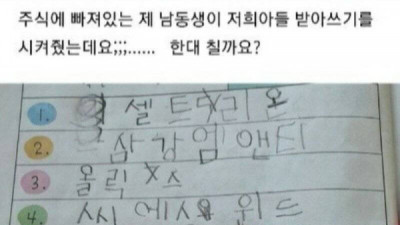 주식에 빠져있는 제 남동생이 저희아들 받아쓰기를
시켜줬는데요;;;...... 한대 칠까요?
1. 셀트리온
2. 삼강임앤티
3. 올릭스
4. 씨에스윈드